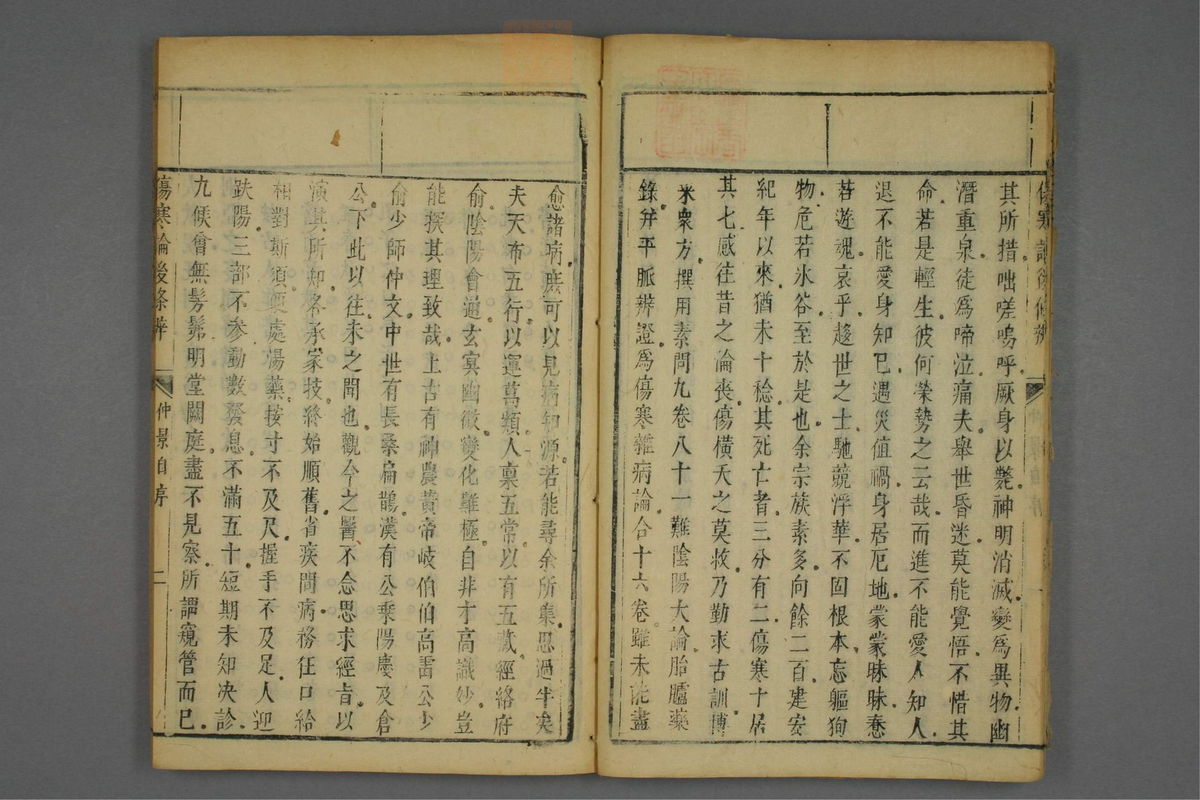 傷寒論後條辨
其所措咄嗟嗚呼厥身以斃神明消滅變爲異物幽
潛重泉徒爲啼泣痛夫舉世昏迷莫能覺悟不惜其
命若是輕生彼何榮勢之云哉而進不能愛人知人
退不能愛身知已遇災值禍身居厄地蒙蒙昧昧惷
若遊魂哀乎趨世之士馳競浮華不固根本忘軀狥
物危若冰谷至於是也余宗族素多向餘二百建安
紀年以來猶未十稔其死亡者三分有二傷寒十居
其七感往昔之淪喪傷橫夭之莫救乃勤求古訓博
采衆方撰用素問九卷八十一難陰陽大論胎臚藥
錄并平脈辨證爲傷寒雜病論合十六卷雖未能盡
愈諸病庶可以見病知源若能尋余所集思過半矣
夫天布五行以運萬類人稟五常以有五藏經絡府
俞陰陽會通玄冥幽微變化難極自非才高識妙豈
能探其理致哉上古有神農黃帝岐伯伯高雷公少
俞少師仲文中世有長桑扁鵲漢有公乘陽慶及倉
公下此以往未之聞也觀今之醫不念思求經旨以
演其所知各承家技終始順舊省疾問病務在口給
相對斯須便處湯藥按寸不及尺握手不及足人迎
趺陽三部不參動數發息不滿五十短期未知决診
九候曾無髣髴明堂闕庭盡不見察所謂窺管而已
傷寒論後條辨 仲景自序 二